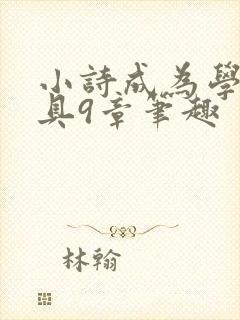 小詩成為學
具9章笔趣
林翰